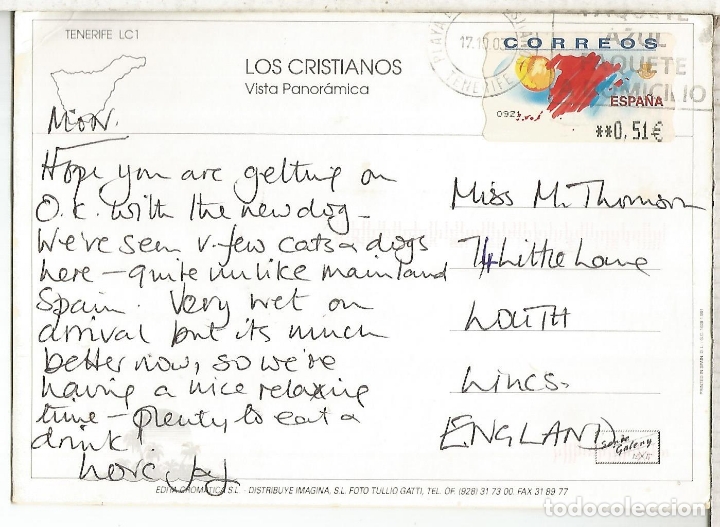 TENERIFE LC1
LOS CRISTIANOS
Vista Panorámica
17.10.03
TENERIFE
AZUL
PAQUETE
A DOMICILIO
CORREOS
ESPAÑA
0921
**0,51€
Hope you are getting on
O.K. with the new dog –
We've seen v. few cats & dogs
here – quite unlike mainland
Spain. Very wet on
arrival but its much
better now, so we're
having a nice relaxing
time – plenty to eat &
drink
Love,
Miss M. Thomson
74 Little Lane
LOUTH
LINCS.
ENGLAND
EDITA CROMATICA S.L. - DISTRIBUYE IMAGINA, S.L. FOTO TULLIO GATTI, TEL. OF. (928) 31 73 00. FAX 31 89 77
todocoleccion